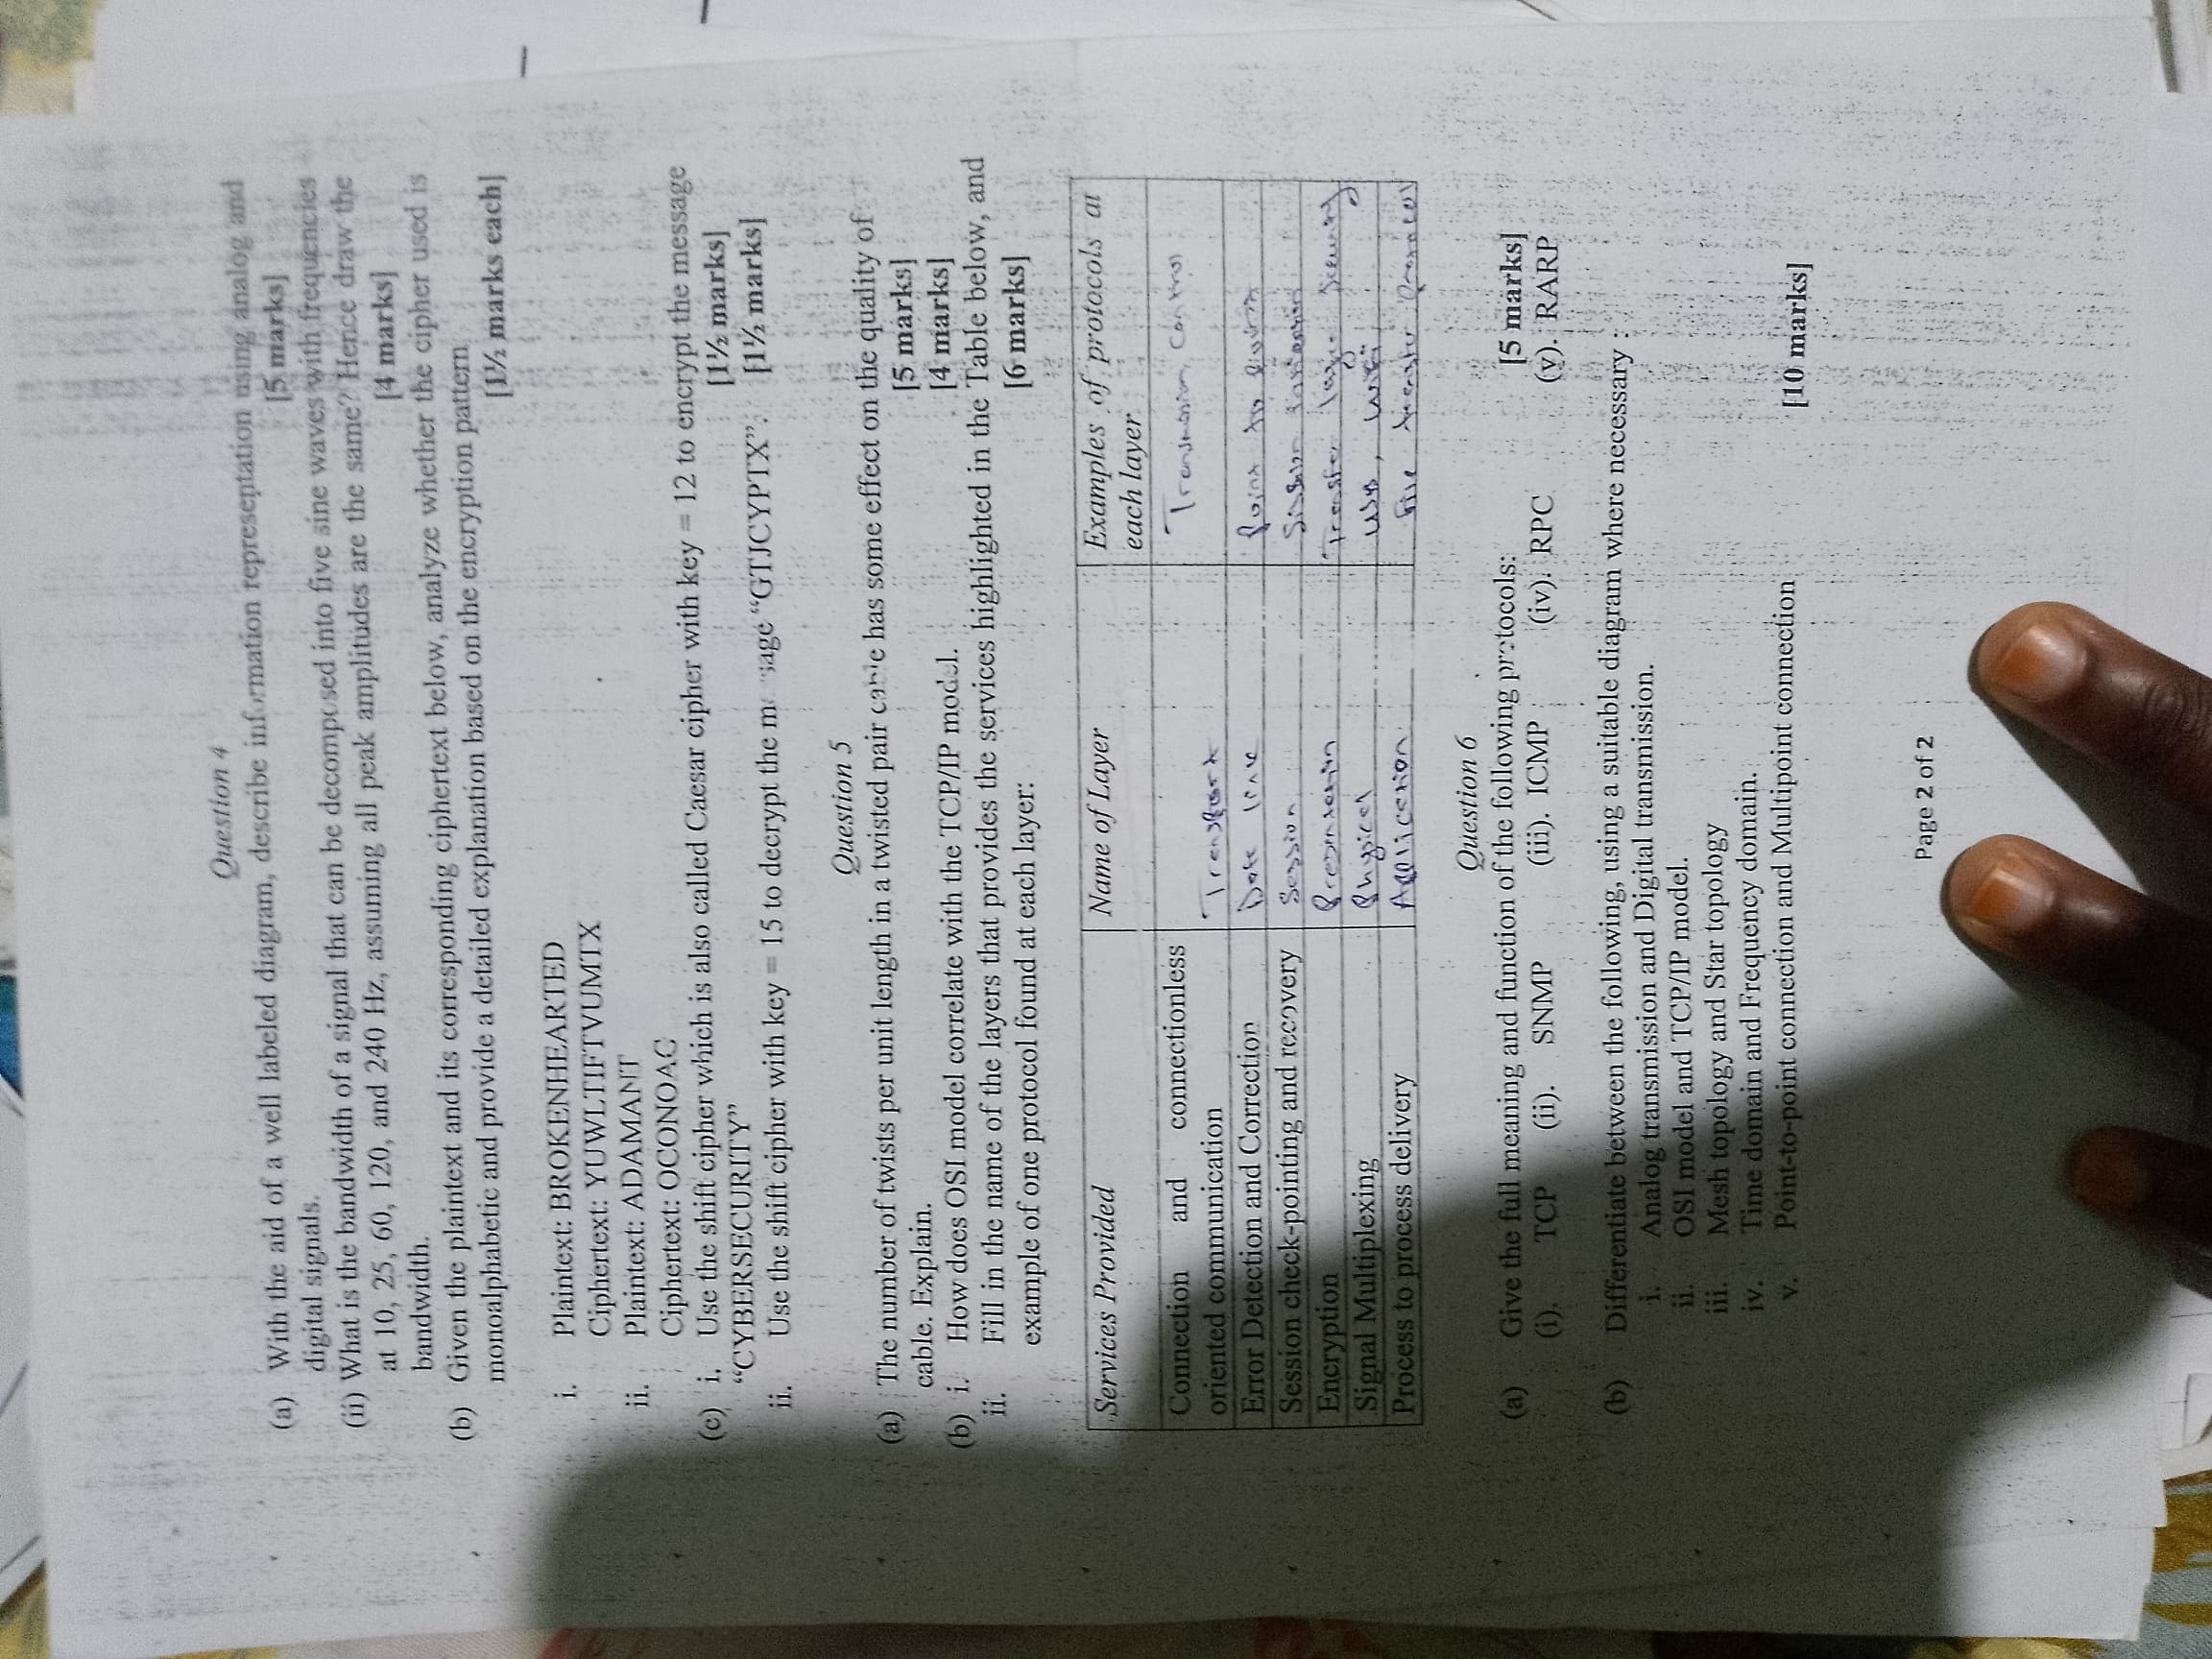 Question 4
(a) With the aid of a well labeled diagram, describe information representation using analog and
digital signals. [5 marks]
(ii) What is the bandwidth of a signal that can be decomposed into five sine waves with frequencies
at 10, 25, 60, 120, and 240 Hz, assuming all peak amplitudes are the same? Hence draw the
bandwidth. [4 marks]
(b) Given the plaintext and its corresponding ciphertext below, analyze whether the cipher used is
monoalphabetic and provide a detailed explanation based on the encryption pattern
[1½ marks each]
i. Plaintext: BROKENHEARTED
Ciphertext: YUWLTIFTVUMTX
ii. Plaintext: ADAMANT
Ciphertext: OCONOAG
(c) i. Use the shift cipher which is also called Caesar cipher with key = 12 to encrypt the message
"CYBERSECURITY" [1½ marks]
ii. Use the shift cipher with key = 15 to decrypt the message "GTJCYPTX". [1½ marks]
Question 5
(a) The number of twists per unit length in a twisted pair cable has some effect on the quality of
cable. Explain. [5 marks]
(b) i. How does OSI model correlate with the TCP/IP model. [4 marks]
ii. Fill in the name of the layers that provides the services highlighted in the Table below, and
example of one protocol found at each layer: [6 marks]
Services Provided Name of Layer Examples of protocols at
each layer
Connection and connectionless Transmission Control
oriented communication Transport
Error Detection and Correction Data link Point to
Session check-pointing and recovery Session Session
Encryption Presentation Transfer layer security
Signal Multiplexing Physical USB,
Process to process delivery Application File transfer protocol
Question 6
(a) Give the full meaning and function of the following protocols: [5 marks]
(i). TCP (ii). SNMP (iii). ICMP (iv). RPC (v). RARP
(b) Differentiate between the following, using a suitable diagram where necessary :
i. Analog transmission and Digital transmission.
ii. OSI model and TCP/IP model.
iii. Mesh topology and Star topology
iv. Time domain and Frequency domain.
v. Point-to-point connection and Multipoint connection [10 marks]
Page 2 of 2